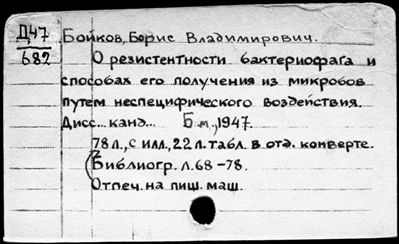 Д47
682
Бойков, Борис Владимирович.
О резистентности бактериофага и
способах его получения из микробов
путем неспецифического воздействия.
Дисс... канд... Б.м., 1947.
78 л., с илл., 22 л. табл. в отд. конверте.
Библиогр. л. 68-78.
Отпеч. на пиш. маш.